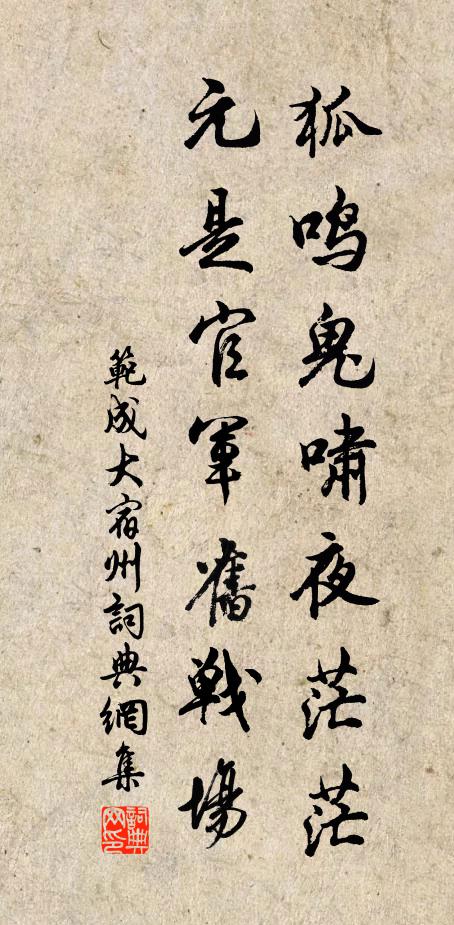 狐鳴鬼嘯夜茫茫
元是官軍舊戰場
範成大宿州詞典網集
詞典網印